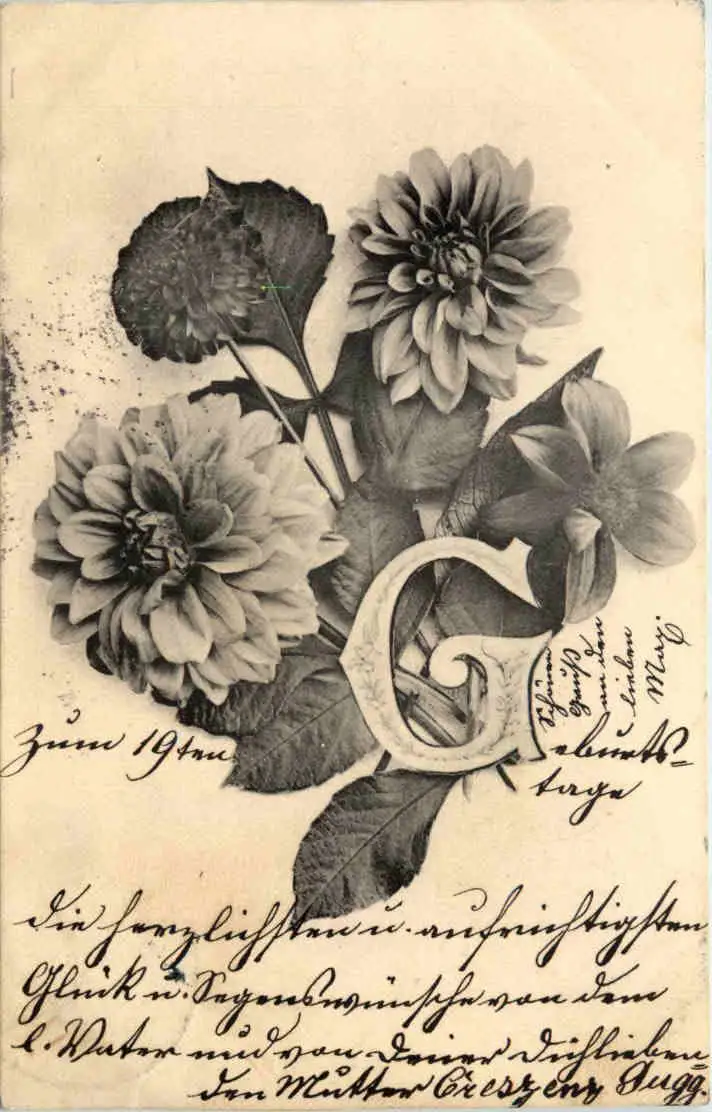 Zum 19ten Geburts=
tage
die herzlichsten u. aufrichtigsten
Glück u. Segenswünsche von dem
l. Vater und von Deiner Dichlieben=
den Mutter Creszenz Gugg.
Schönen
Gruß
an den
lieben
Max.